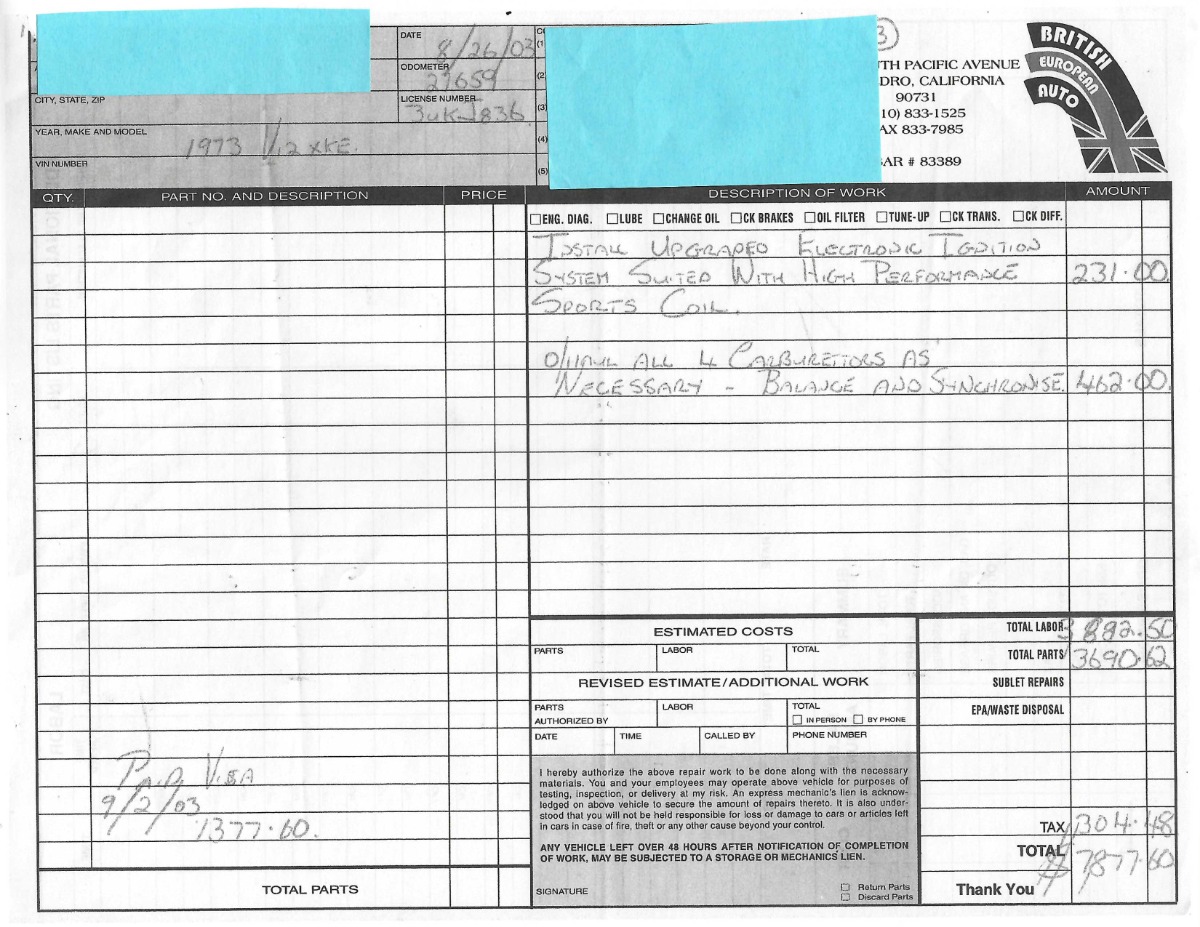 DATE
8/26/03
ODOMETER
27659
CITY, STATE, ZIP
LICENSE NUMBER
3UKJ836
YEAR, MAKE AND MODEL
1973 V12 XKE.
VIN NUMBER
(1)
(2)
(3)
(4)
(5)
3
TH PACIFIC AVENUE
DRO, CALIFORNIA
90731
10) 833-1525
AX 833-7985
AR # 83389
BRITISH
EUROPEAN
AUTO
QTY. PART NO. AND DESCRIPTION PRICE DESCRIPTION OF WORK AMOUNT
ENG. DIAG. LUBE CHANGE OIL CK BRAKES OIL FILTER TUNE-UP CK TRANS. CK DIFF.
INSTALL UPGRADED ELECTRONIC IGNITION
SYSTEM SUITED WITH HIGH PERFORMANCE 231.00.
SPORTS COIL.
O/HAUL ALL 4 CARBURETTORS AS
NECESSARY - BALANCE AND SYNCHRONISE. 462.00.
ESTIMATED COSTS
PARTS LABOR TOTAL
REVISED ESTIMATE/ADDITIONAL WORK
PARTS LABOR TOTAL
AUTHORIZED BY IN PERSON BY PHONE
DATE TIME CALLED BY PHONE NUMBER
TOTAL LABOR 3882.50
TOTAL PARTS 3690.62
SUBLET REPAIRS
EPA/WASTE DISPOSAL
PAID VISA
9/2/03
1377.60.
I hereby authorize the above repair work to be done along with the necessary
materials. You and your employees may operate above vehicle for purposes of
testing, inspection, or delivery at my risk. An express mechanic's lien is acknow-
ledged on above vehicle to secure the amount of repairs thereto. It is also under-
stood that you will not be held responsible for loss or damage to cars or articles left
in cars in case of fire, theft or any other cause beyond your control.
ANY VEHICLE LEFT OVER 48 HOURS AFTER NOTIFICATION OF COMPLETION
OF WORK, MAY BE SUBJECTED TO A STORAGE OR MECHANICS LIEN.
TAX 304.48
TOTAL $7877.60
TOTAL PARTS
SIGNATURE
Return Parts
Discard Parts
Thank You